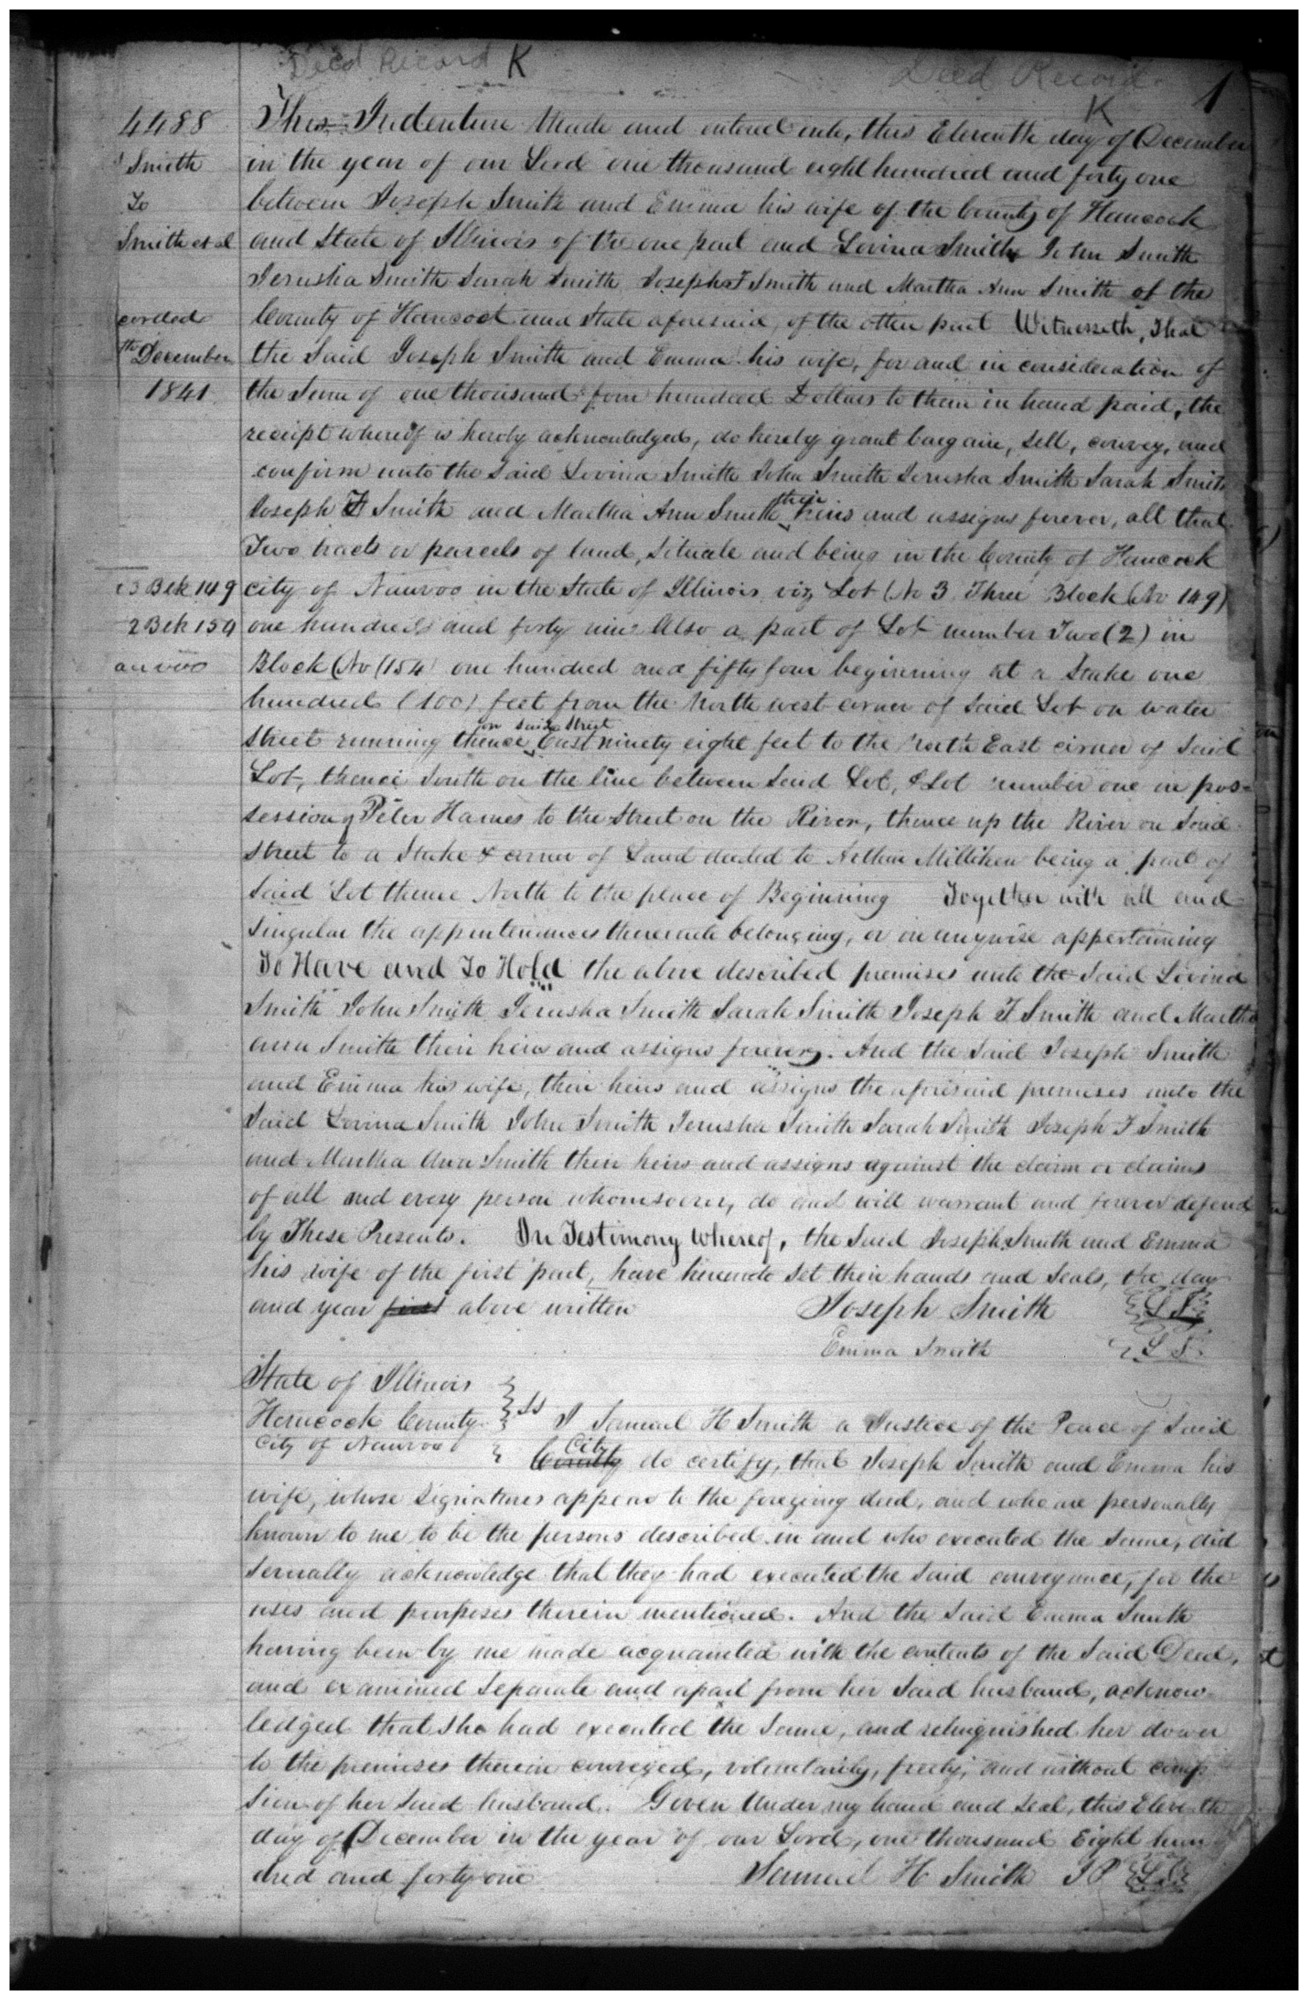 Deed Record K
Deed Record
K
1
4488
Smith
To
Smith et al
corded
th December
1841
3 Blk 149
2 Blk 154
auvoo
This Indenture Made and entered into, this Eleventh day of December
in the year of our Lord one thousand eight hundred and forty one
between Joseph Smith and Emma his wife of the County of Hancock
and State of Illinois of the one part and Lovina Smith John Smith
Jerusha Smith Sarah Smith Joseph F Smith and Martha Ann Smith of the
County of Hancock and State aforesaid, of the other part Witnesseth, That
the Said Joseph Smith and Emma his wife, for and in consideration of
the Sum of one thousand four hundred Dollars to them in hand paid, the
receipt whereof is hereby acknowledged, do hereby grant bargain, Sell, convey, and
confirm unto the Said Lovina Smith John Smith Jerusha Smith Sarah Smith
Joseph F Smith and Martha Ann Smith their heirs and assigns forever, all that
Two tracts or parcels of land, Situate and being in the County of Hancock
city of Nauvoo in the State of Illinois viz Lot (No 3 Three Block (No 149)
one hundred and forty nine Also a part of Lot number Two (2) in
Block (No (154 one hundred and fifty four beginning at a Stake one
hundred (100) feet from the North west corner of Said Lot on water
Street running thence on Said Street East ninety eight feet to the North East corner of Said
Lot, thence South on the line between Said Lot, & Lot number one in pos=
session of Peter Hawes to the Street on the River, thence up the River on Said
Street to a Stake & corner of Land deeded to Arthur Milliken being a part of
Said Lot thence North to the place of Beginning Together with all and
Singular the appurtenances thereunto belonging, or in anywise appertaining
To Have and To Hold the above described premises unto the Said Lovina
Smith John Smith Jerusha Smith Sarah Smith Joseph F Smith and Martha
ann Smith their heirs and assigns forever. And the Said Joseph Smith
and Emma his wife, their heirs and assigns the aforesaid premises unto the
Said Lovina Smith John Smith Jerusha Smith Sarah Smith Joseph F Smith
and Martha Ann Smith their heirs and assigns against the claim or claims
of all and every person whomsoever, do and will warrant and forever defend
by These Presents. In Testimony Whereof, the Said Joseph Smith and Emma
his wife of the first part, have hereunto Set their hands and Seals, the day
and year first above written Joseph Smith L S
Emma Smith L S
State of Illinois
Hancock County Ss I Samuel H Smith a Justice of the Peace of Said
City of Nauvoo County City do certify, that Joseph Smith and Emma his
wife, whose Signatures appear to the foregoing deed, and who are personally
known to me to be the persons described in and who executed the Same, did
Serually acknowledge that they had executed the Said conveyance, for the
uses and purposes therein mentioned. And the Said Emma Smith
having been by me made acquainted with the contents of the Said Deed,
and examined Separate and apart from her Said husband, acknow-
ledged that She had executed the Same, and relinquished her dower
to the premises therein conveyed, voluntarily, freely, and without comp
sion of her Said husband. Given Under my hand and Seal, this Eleventh
day of December in the year of our Lord, one thousand Eight hun
dred and forty one Samuel H Smith J P L S